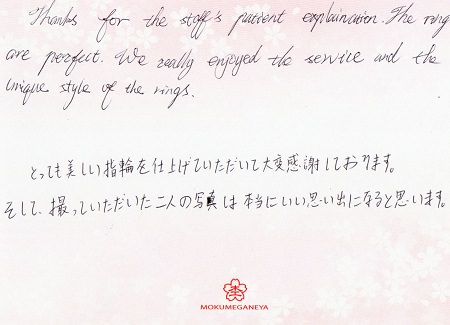 Thanks for the staff's patient explaination. The rings
are perfect. We really enjoyed the service and the
unique style of the rings.
とっても美しい指輪を仕上げていただいて大変感謝しております。
そして、撮っていただいた二人の写真は本当にいい思い出になると思います。
MOKUMEGANEYA